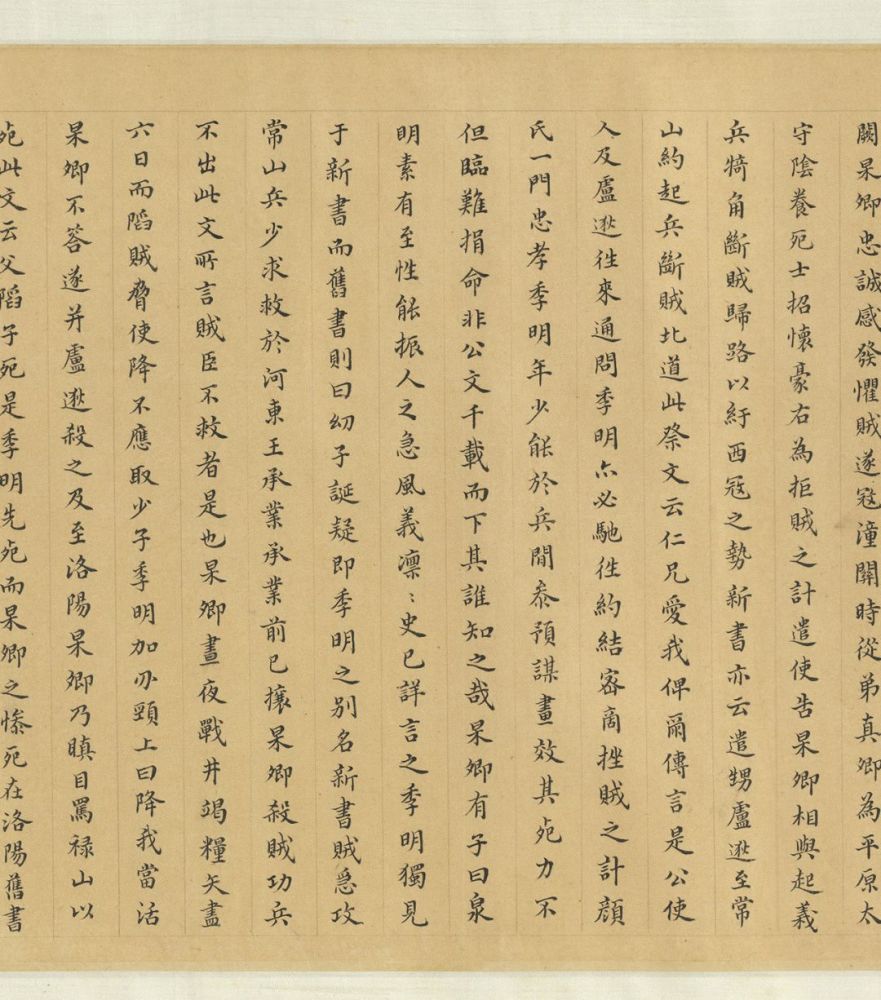 闕杲卿忠誠感發懼賊遂寇潼關時從弟真卿為平原太
守陰養死士招懷豪右為拒賊之計遣使告杲卿相與起義
兵犄角斷賊歸路以紓西寇之勢新書亦云遣甥盧逖至常
山約起兵斷賊北道此祭文云仁兄愛我俾爾傳言是公使
人及盧逖往來通問季明亦必馳往約結密啇挫賊之計顔
氏一門忠孝季明年少能於兵間叅預謀畫效其死力不
但臨難捐命非公文千載而下其誰知之哉杲卿有子曰泉
明素有至性能振人之急風義凛〻史已詳言之季明獨見
于新書而舊書則曰幼子誕疑即季明之别名新書賊急攻
常山兵少求救於河東王承業承業前已攘杲卿殺賊功兵
不出此文所言賊臣不救者是也杲卿晝夜戰井竭糧矢盡
六日而陷賊脅使降不應取少子季明加刃頸上曰降我當活
杲卿不答遂并盧逖殺之及至洛陽杲卿乃瞋目罵祿山以
死此文云父陷子死是季明先死而杲卿之慘死在洛陽舊書